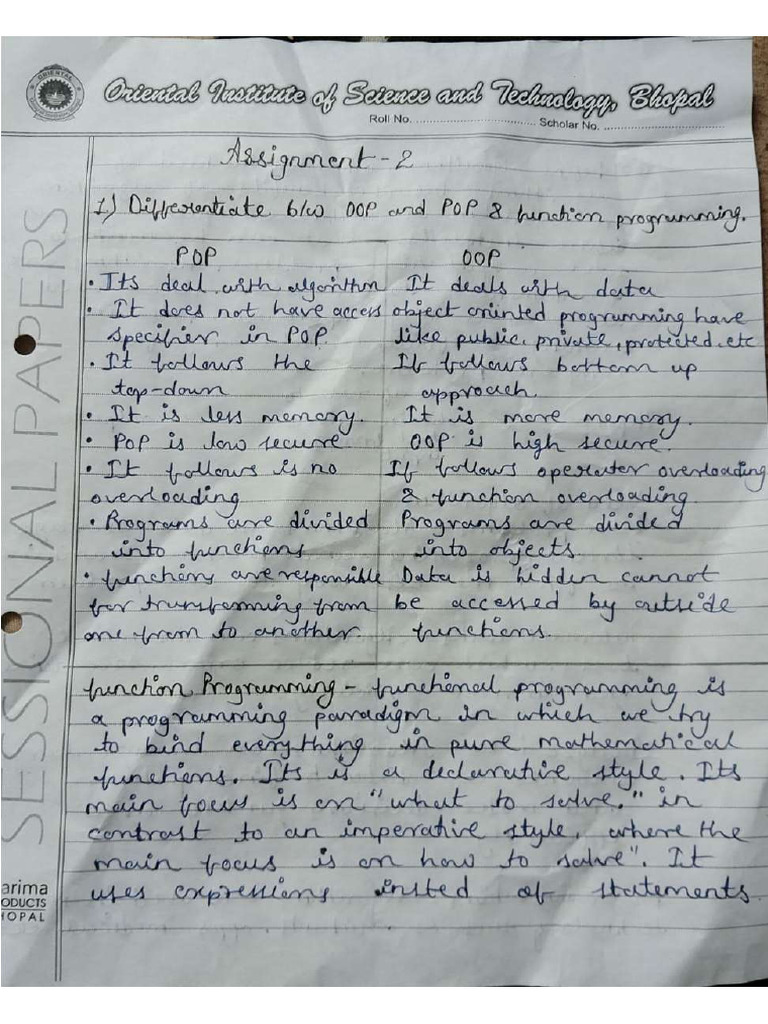 Oriental Institute of Science and Technology, Bhopal
Roll No. ........................... Scholar No. ...........................
Assignment - 2
1.) Differentiate b/w OOP and POP & function programming.
POP OOP
• Its deal with algorithm It deals with data
• It does not have access object oriented programming have
specifier in POP. like public, private, protected, etc
• It follows the It follows bottom up
top-down approach.
• It is less memory. It is more memory.
• POP is low secure. OOP is high secure.
• It follows is no It follows operater overloading
overloading & function overloading
• Programs are divided Programs are divided
into functions into objects.
• functions are responsible Data is hidden cannot
for transforming from be accessed by outside
one from to another. functions.
function Programming - functional programming is
a programming paradigm in which we try
to bind everything in pure mathematical
functions. Its is a declarative style. Its
main focus is on "what to solve." in
contrast to an imperative style, where the
main focus is on how to solve". It
uses expressions insted of statements
SESSIONAL PAPERS
arima
ODUCTS
HOPAL
ORIENTAL